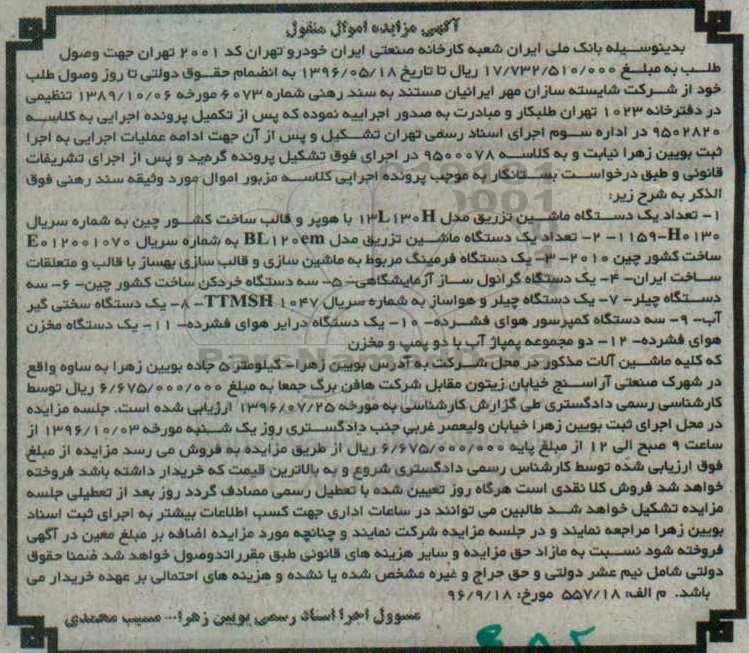 آگهی مزایده اموال منقول
بدینوسیله بانک ملی ایران شعبه کارخانه صنعتی ایران خودرو تهران کد ۲۰۰۱ تهران جهت وصول
طلب به مبلغ ۱۷/۷۳۲/۵۱۰/۰۰۰ ریال تا تاریخ ۱۳۹۶/۰۵/۱۸ به انضمام حقوق دولتی تا روز وصول طلب
خود از شرکت شایسته سازان مهر ایرانیان مستند به سند رهنی شماره ۶۰۷۳ مورخه ۱۳۸۹/۱۰/۰۶ تنظیمی
در دفترخانه ۱۰۲۳ تهران طلبکار و مبادرت به صدور اجراییه نموده که پس از تکمیل پرونده اجرایی به کلاسه
۹۵۰۲۸۲۰ در اداره سوم اجرای اسناد رسمی تهران تشکیل و پس از آن جهت ادامه عملیات اجرایی به اجرا
ثبت بویین زهرا نیابت و به کلاسه ۹۵۰۰۰۷۸ در اجرای فوق تشکیل پرونده گردید و پس از اجرای تشریفات
قانونی و طبق درخواست بستانکار به موجب پرونده اجرایی کلاسه مزبور اموال مورد وثیقه سند رهنی فوق
الذکر به شرح زیر:
۱- تعداد یک دستگاه ماشین تزریق مدل ۱۳L۱۳۰H با هوپر و قالب ساخت کشور چین به شماره سریال
۱۱۵۹-H۰۱۳۰ ۲- تعداد یک دستگاه ماشین تزریق مدل BL۱۲۰em به شماره سریال E۰۱۲۰۰۱۰۷۰
ساخت کشور چین ۲۰۱۰- ۳- یک دستگاه فرمینگ مربوط به ماشین سازی و قالب سازی بهساز با قالب و متعلقات
ساخت ایران- ۴- یک دستگاه گرانول ساز آزمایشگاهی- ۵- سه دستگاه خردکن ساخت کشور چین- ۶- سه
دستگاه چیلر- ۷- یک دستگاه چیلر و هواساز به شماره سریال TTMSH ۱۰۴۷- ۸- یک دستگاه سختی گیر
آب- ۹- سه دستگاه کمپرسور هوای فشرده- ۱۰- یک دستگاه درایر هوای فشرده- ۱۱- یک دستگاه مخزن
هوای فشرده- ۱۲- دو مجموعه پمپاژ آب با دو پمپ و مخزن
که کلیه ماشین آلات مذکور در محل شرکت به آدرس بویین زهرا- کیلومتر ۵ جاده بویین زهرا به ساوه واقع
در شهرک صنعتی آراسنج خیابان زیتون مقابل شرکت هافن برگ جمعا به مبلغ ۶/۶۷۵/۰۰۰/۰۰۰ ریال توسط
کارشناسی رسمی دادگستری طی گزارش کارشناسی به مورخه ۱۳۹۶/۰۷/۲۵ ارزیابی شده است. جلسه مزایده
در محل اجرای ثبت بویین زهرا خیابان ولیعصر غربی جنب دادگستری روز یک شنبه مورخه ۱۳۹۶/۱۰/۰۳ از
ساعت ۹ صبح الی ۱۲ از مبلغ پایه ۶/۶۷۵/۰۰۰/۰۰۰ ریال از طریق مزایده به فروش می رسد مزایده از مبلغ
فوق ارزیابی شده توسط کارشناس رسمی دادگستری شروع و به بالاترین قیمت که خریدار داشته باشد فروخته
خواهد شد فروش کلا نقدی است هرگاه روز تعیین شده با تعطیل رسمی مصادف گردد روز بعد از تعطیلی جلسه
مزایده تشکیل خواهد شد طالبین می توانند در ساعات اداری جهت کسب اطلاعات بیشتر به اجرای ثبت اسناد
بویین زهرا مراجعه نمایند و در جلسه مزایده شرکت نمایند و چنانچه مورد مزایده اضافه بر مبلغ معین در آگهی
فروخته شود نسبت به مازاد حق مزایده و سایر هزینه های قانونی طبق مقررات وصول خواهد شد ضمنا حقوق
دولتی شامل نیم عشر دولتی و حق حراج و غیره مشخص شده یا نشده و هزینه های احتمالی بر عهده خریدار می
باشد. م الف: ۵۵۷/۱۸ مورخ: ۹۶/۹/۱۸
مسوول اجرا اسناد رسمی بویین زهرا... مسیب محمدی